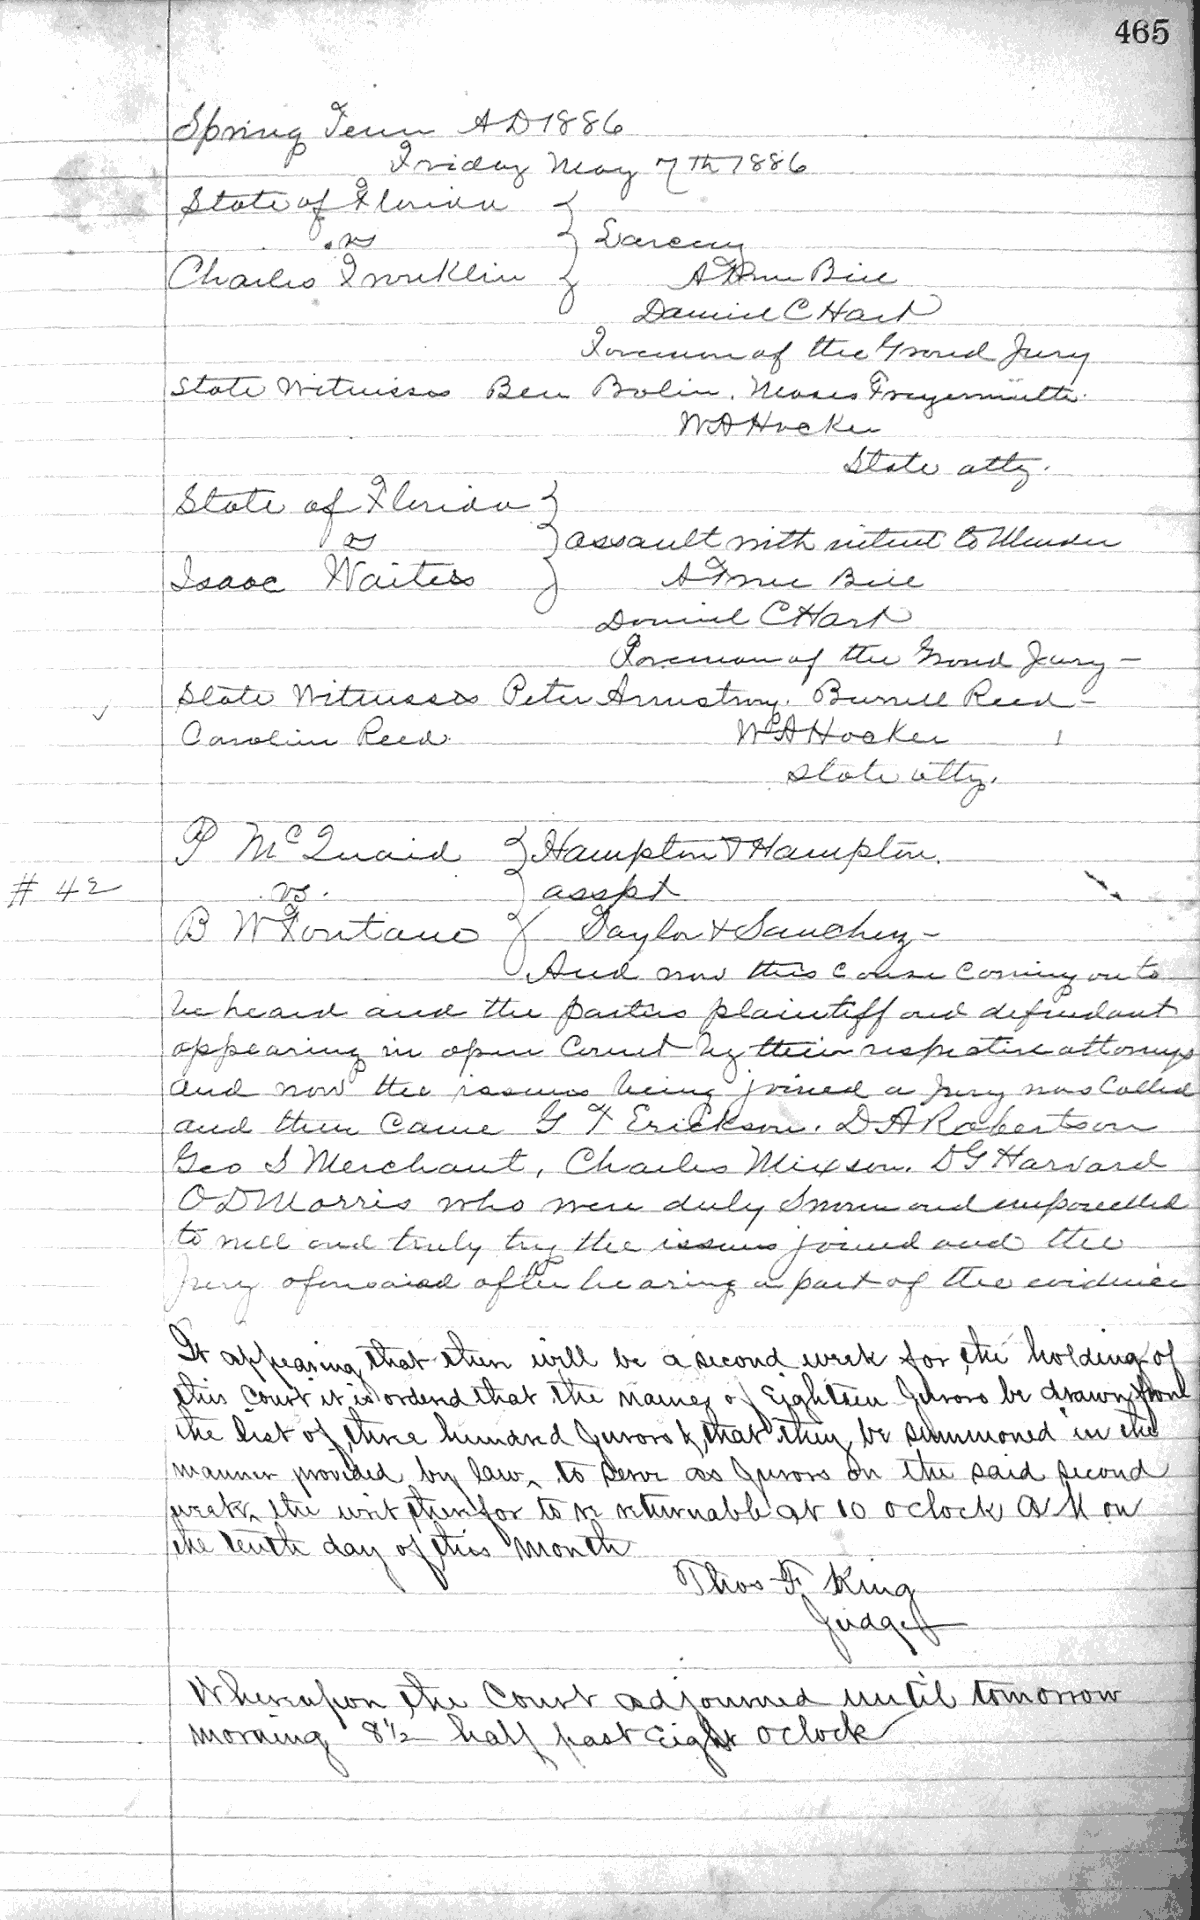 465
Spring Term AD 1886
Friday May 7th 1886
State of Florida
vs
Larceny
Charles Franklin
A True Bill
Daniel C Hart
Foreman of the Grand Jury
State Witnesses Ben Bolin. Moses Freyermuth.
W A Hocker
State atty.
State of Florida
vs
assault with intent to Murder
Isaac Waites
A True Bill
Daniel C Hart
Foreman of the Grand Jury –
State Witnesses Peter Armstrong. Burrell Reed –
Caroline Reed. W A Hocker
State atty.
P McQuaid Hampton & Hampton.
# 42 vs. asspt
B W Fontano Taylor & Sanchez –
And now this cause coming on to
be heard and the parties plaintiff and defendant
appearing in open Court by their respective attorneys
and now the issues being joined a Jury was Called
and then Came G F Erickson. D A Robertson
Geo S Merchant, Charles Mixson. D G Harvard
O D Morris who were duly Sworn and empanelled
to well and truly try the issues joined and the
Jury aforesaid after hearing a part of the evidence
It appearing that there will be a second week for the holding of
this Court it is ordered that the names of Eighteen Jurors be drawn from
the list of three hundred Jurors & that they be summoned in the
manner provided by law, to serve as Jurors on the said second
week, the writ therefor to be returnable at 10 oclock A M on
the tenth day of this month
Thos F. King
Judge
Whereupon the Court adjourned until tomorrow
morning 8½ half past Eight oclock